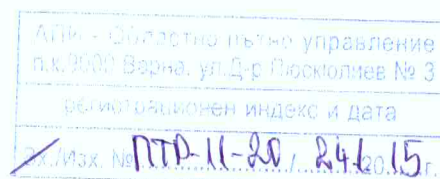 АПИ - Областно пътно управление
п.к. 9000 Варна, ул. Д-р Пюскюлиев № 3
регистрационен индекс и дата
Вх./Изх. № ПТР-11-20 / 20 15 г.